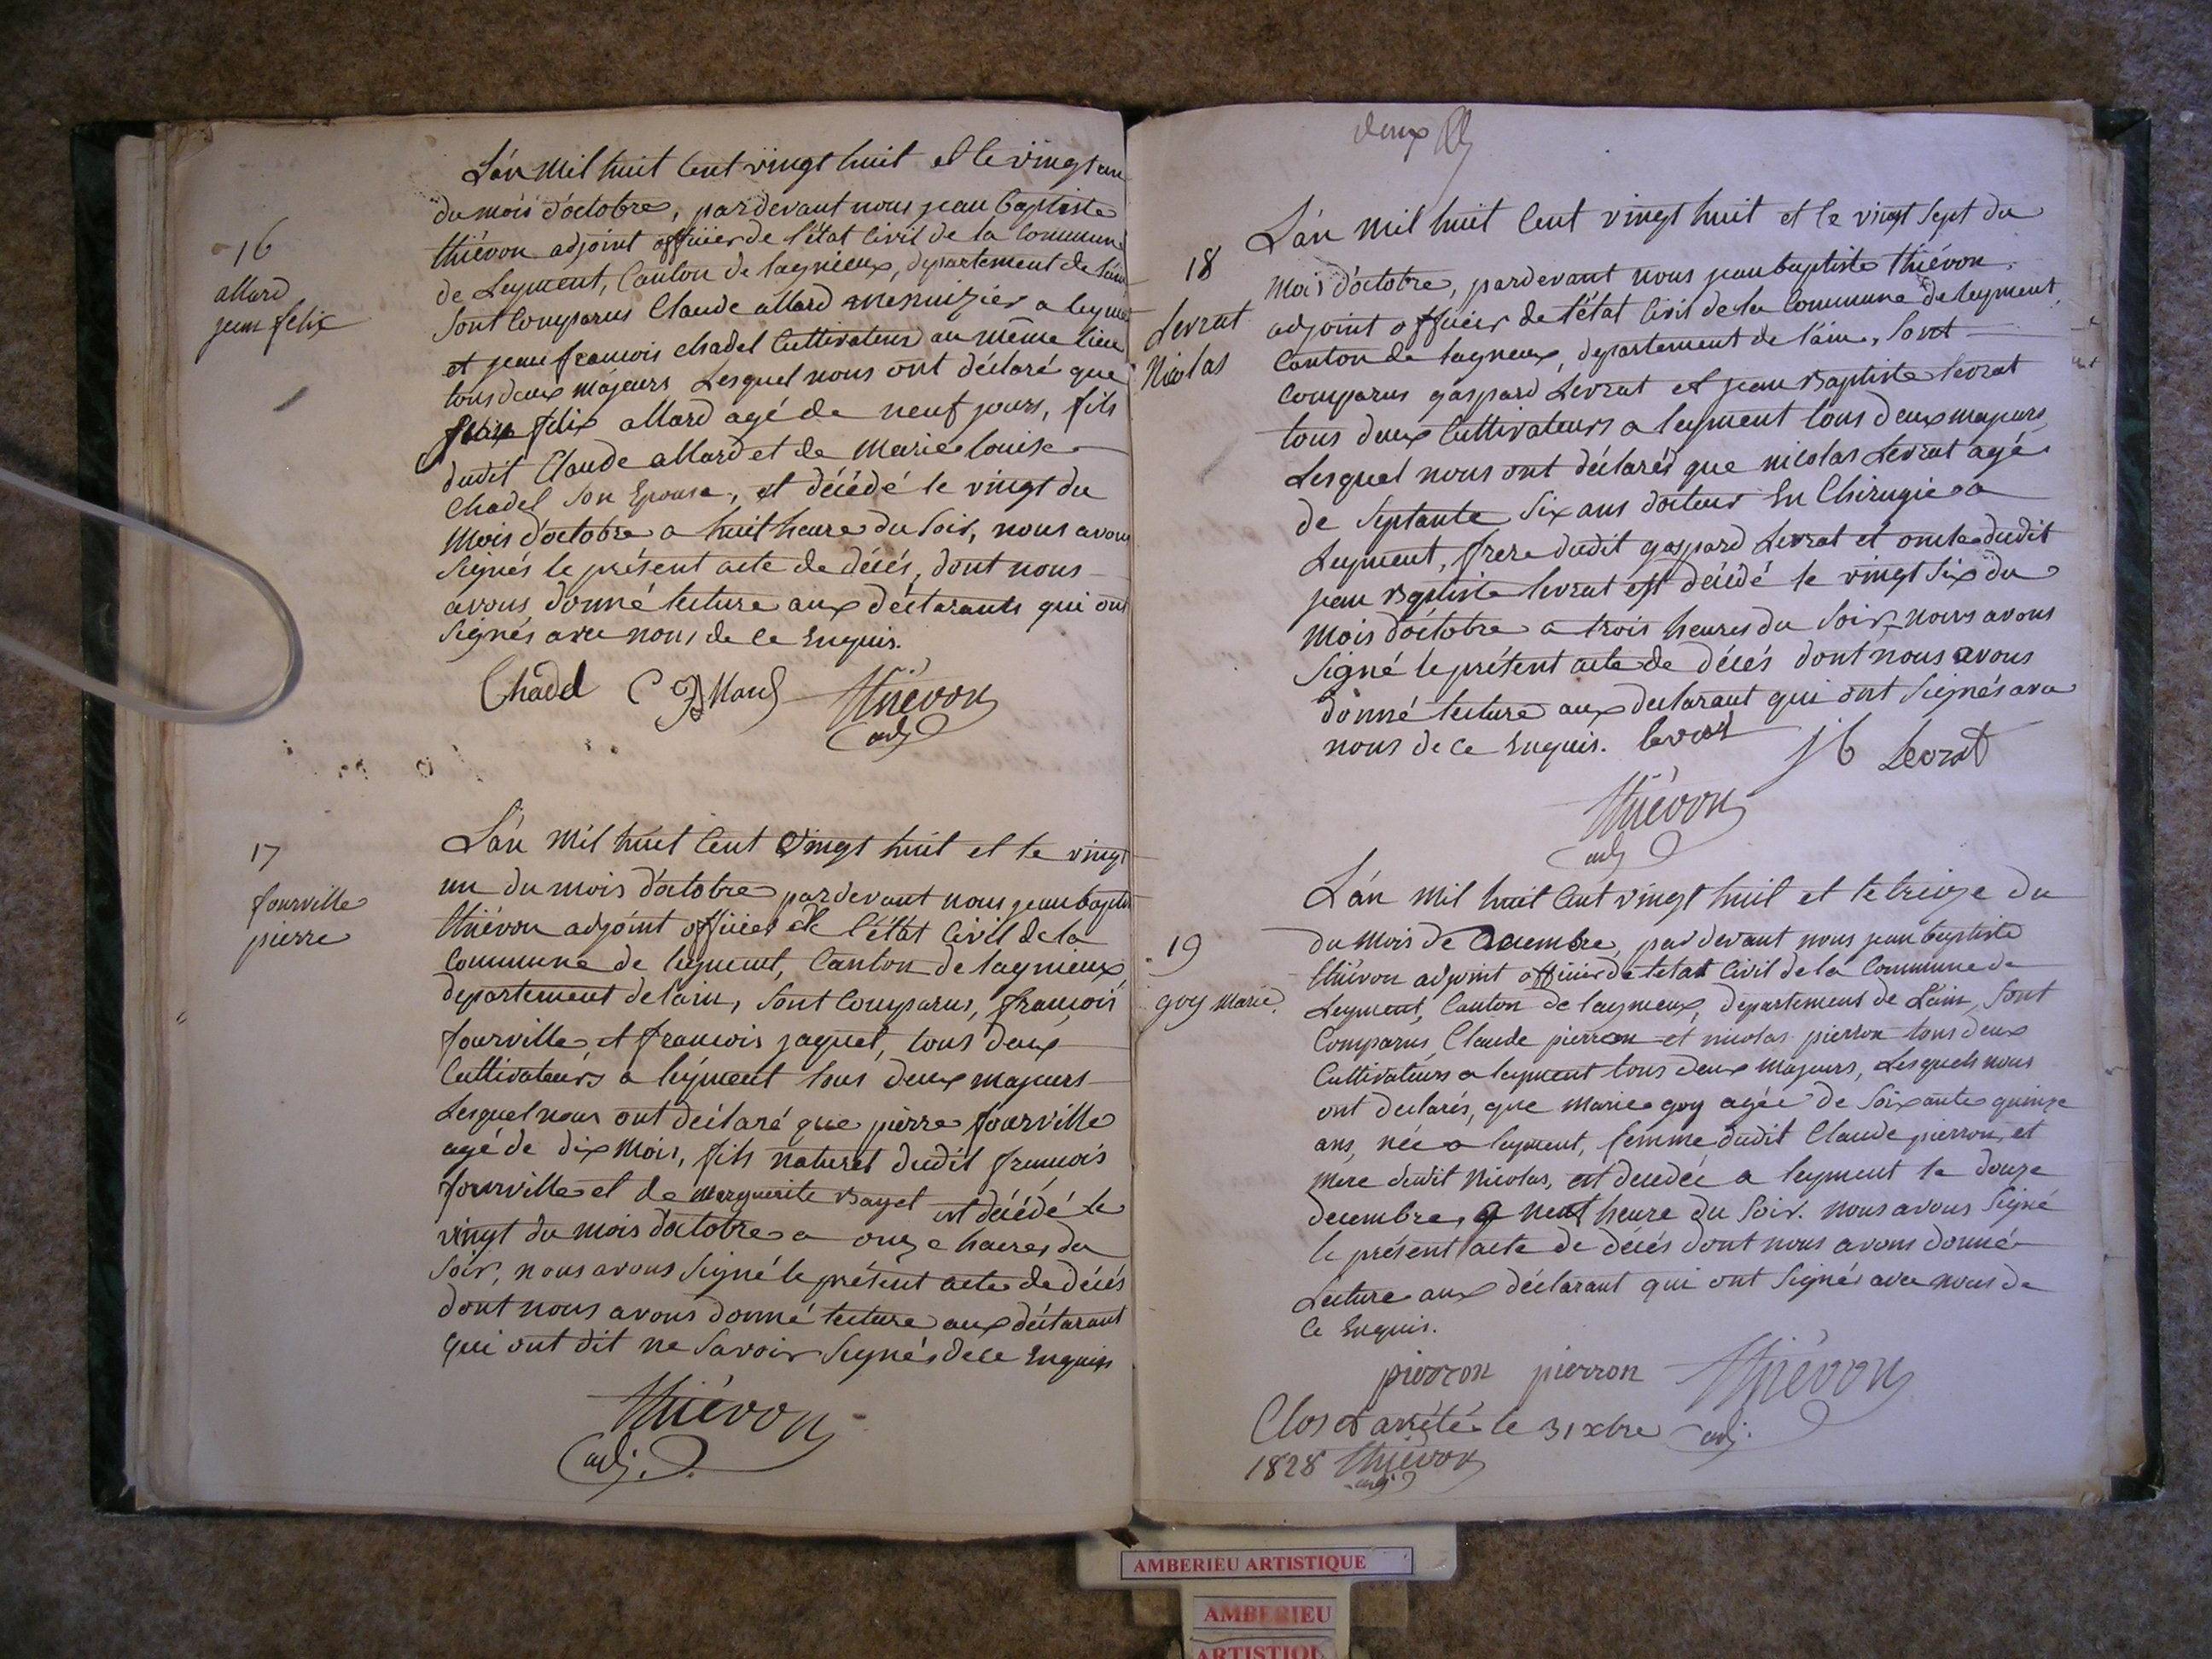 16
allard
jean felix
L'án mil huit Cent vingt huit et le vingt un
du mois d'octobre, pardevant nous jean baptiste
thiévon adjoint officier de l'état Civil de la Commune
de Leyment, Canton de lagnieux, departement de l'ain
Sont Comparus Claude allard menuizier a leyment
et jean francois chadel Cultivateur au même lieu
tous deux májeurs Lesquel nous ont déclaré que
felix allard agé de neuf jours, fils
dudit Claude allard et de Marie louise
Chadel son Epouse, est décédé le vingt du
mois d'octobre a huit heure du Soir, nous avons
Signés le présent acte de décés, dont nous
avons donné lecture aux déclarants qui ont
Signés avec nous de ce Enquis.
Chadel C Allard Thiévon
adj
17
fourville
pierre
L'án mil huit Cent Vingt huit et le vingt
un du mois d'octobre pardevant nous jean baptiste
thiévon adjoint officier de l'état Civil de la
Commune de leyment, Canton de lagnieux
departement de lain, Sont Comparus, francois
fourville, et francois jaquet, tous deux
Cultivateurs a leyment tous deux majeurs
Lesquel nous ont déclaré que pierre fourville
agé de dix Mois, fils naturel dudit francois
fourville et de Marguerite Bayet est décédé le
vingt du mois d'octobre a onze heures du
Soir, nous avons Signé le présent acte de décés
dont nous avons donné lecture aux déclarant
qui ont dit ne Savoir Signés de ce Enquis
Thiévon
adj.
deux
18
Levrat
Nicolas
L'án mil huit Cent vingt huit et le vingt Sept du
Mois d'octobre, pardevant nous jean baptiste thiévon,
adjoint officier de l'état Civil de la Commune de leyment
Canton de lagneux, departement de l'ain, Sont
Comparus gaspard Levrat et jean Baptiste levrat
tous deux Cultivateurs a leyment tous deux majeurs
Lesquel nous ont déclarés que nicolas Levrat agé
de Septante Six ans docteur En Chirugie a
Leyment, frere dudit gaspard Levrat et oncle dudit
jean Baptiste levrat est décédé le vingt Six du
mois d'octobre a trois heures du Soir, nous avons
Signé le présent acte de décés dont nous avons
donné lecture aux declarant qui ont Signés avec
nous de ce Enquis. levrat J b Levrat
Thiévon
adj
19
goy Marie.
L'án mil huit Cent vingt huit et le treize du
du mois de Decembre, par devant nous jean baptiste
thiévon adjoint officier de l'etat Civil de la Commune de
Leyment, Canton de lagnieux, departement de L'ain, Sont
Comparus, Claude pierron et nicolas pierron tous deux
Cultivateurs a leyment tous deux majeurs, Lesquels nous
ont declarés, que marie goy agée de Soixante quinze
ans, née a leyment, femme dudit Claude pierron, et
mere dudit Nicolas, est decedée a leyment le douze
decembre, a neuf heure du Soir. nous avons Signé
le présent acte de décés dont nous avons donné
Lecture aux déclarant qui ont Signés avec nous de
Ce Enquis.
pierron pierron Thiévon
adj.
Clos et arrêté le 31 xbre
1828 Thiévon
adj
AMBERIEU ARTISTIQUE
AMBERIEU
ARTISTIQUE